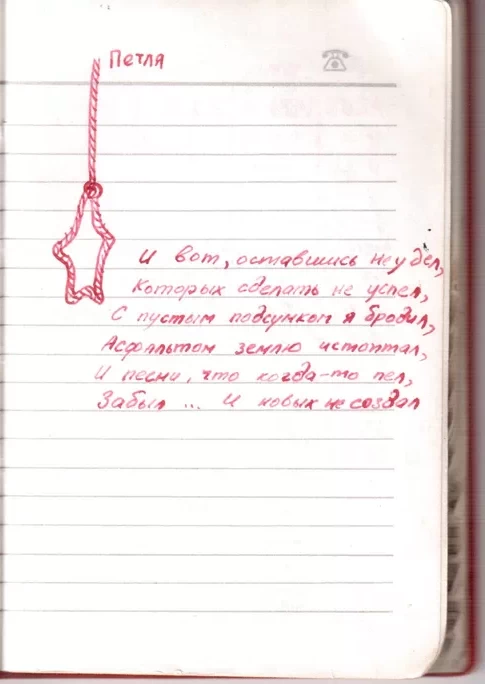 Петля
И вот, оставшись не у дел,
Которых сделать не успел,
С пустым подсумком я бродил,
Асфальтом землю истоптал,
И песни, что когда-то пел,
Забыл ... И новых не создал